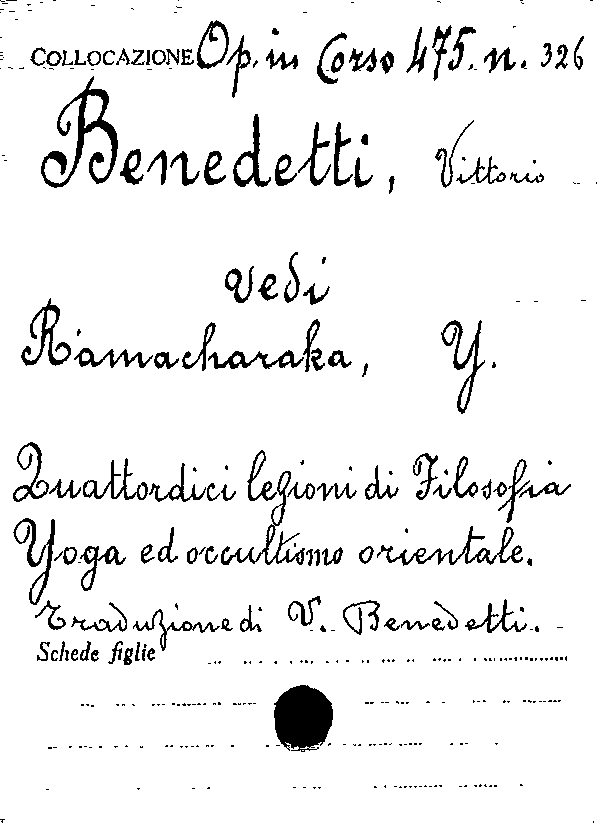 COLLOCAZIONE Op. in Corso 475. n. 326
Benedetti, Vittorio
vedi
Ramacharaka, Y.
Quattordici lezioni di Filosofia
Yoga ed occultismo orientale.
Traduzione di V. Benedetti.
Schede figlie